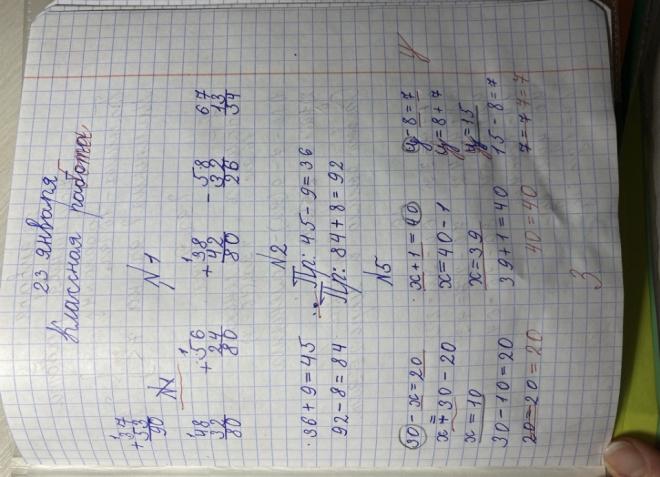 23 января
Классная работа
N1
+37
53
90
48
32
80
+56
24
80
+38
42
80
-58
32
26
67
13
54
N2
36+9=45 Пр: 45-9=36
92-8=84 Пр: 84+8=92
N5
30-x=20 x+1=40 y-8=7
x=30-20 x=40-1 y=8+7
x=10 x=39 y=15
30-10=20 39+1=40 15-8=7
20=20=20 40=40 7=7 7=7
3 4